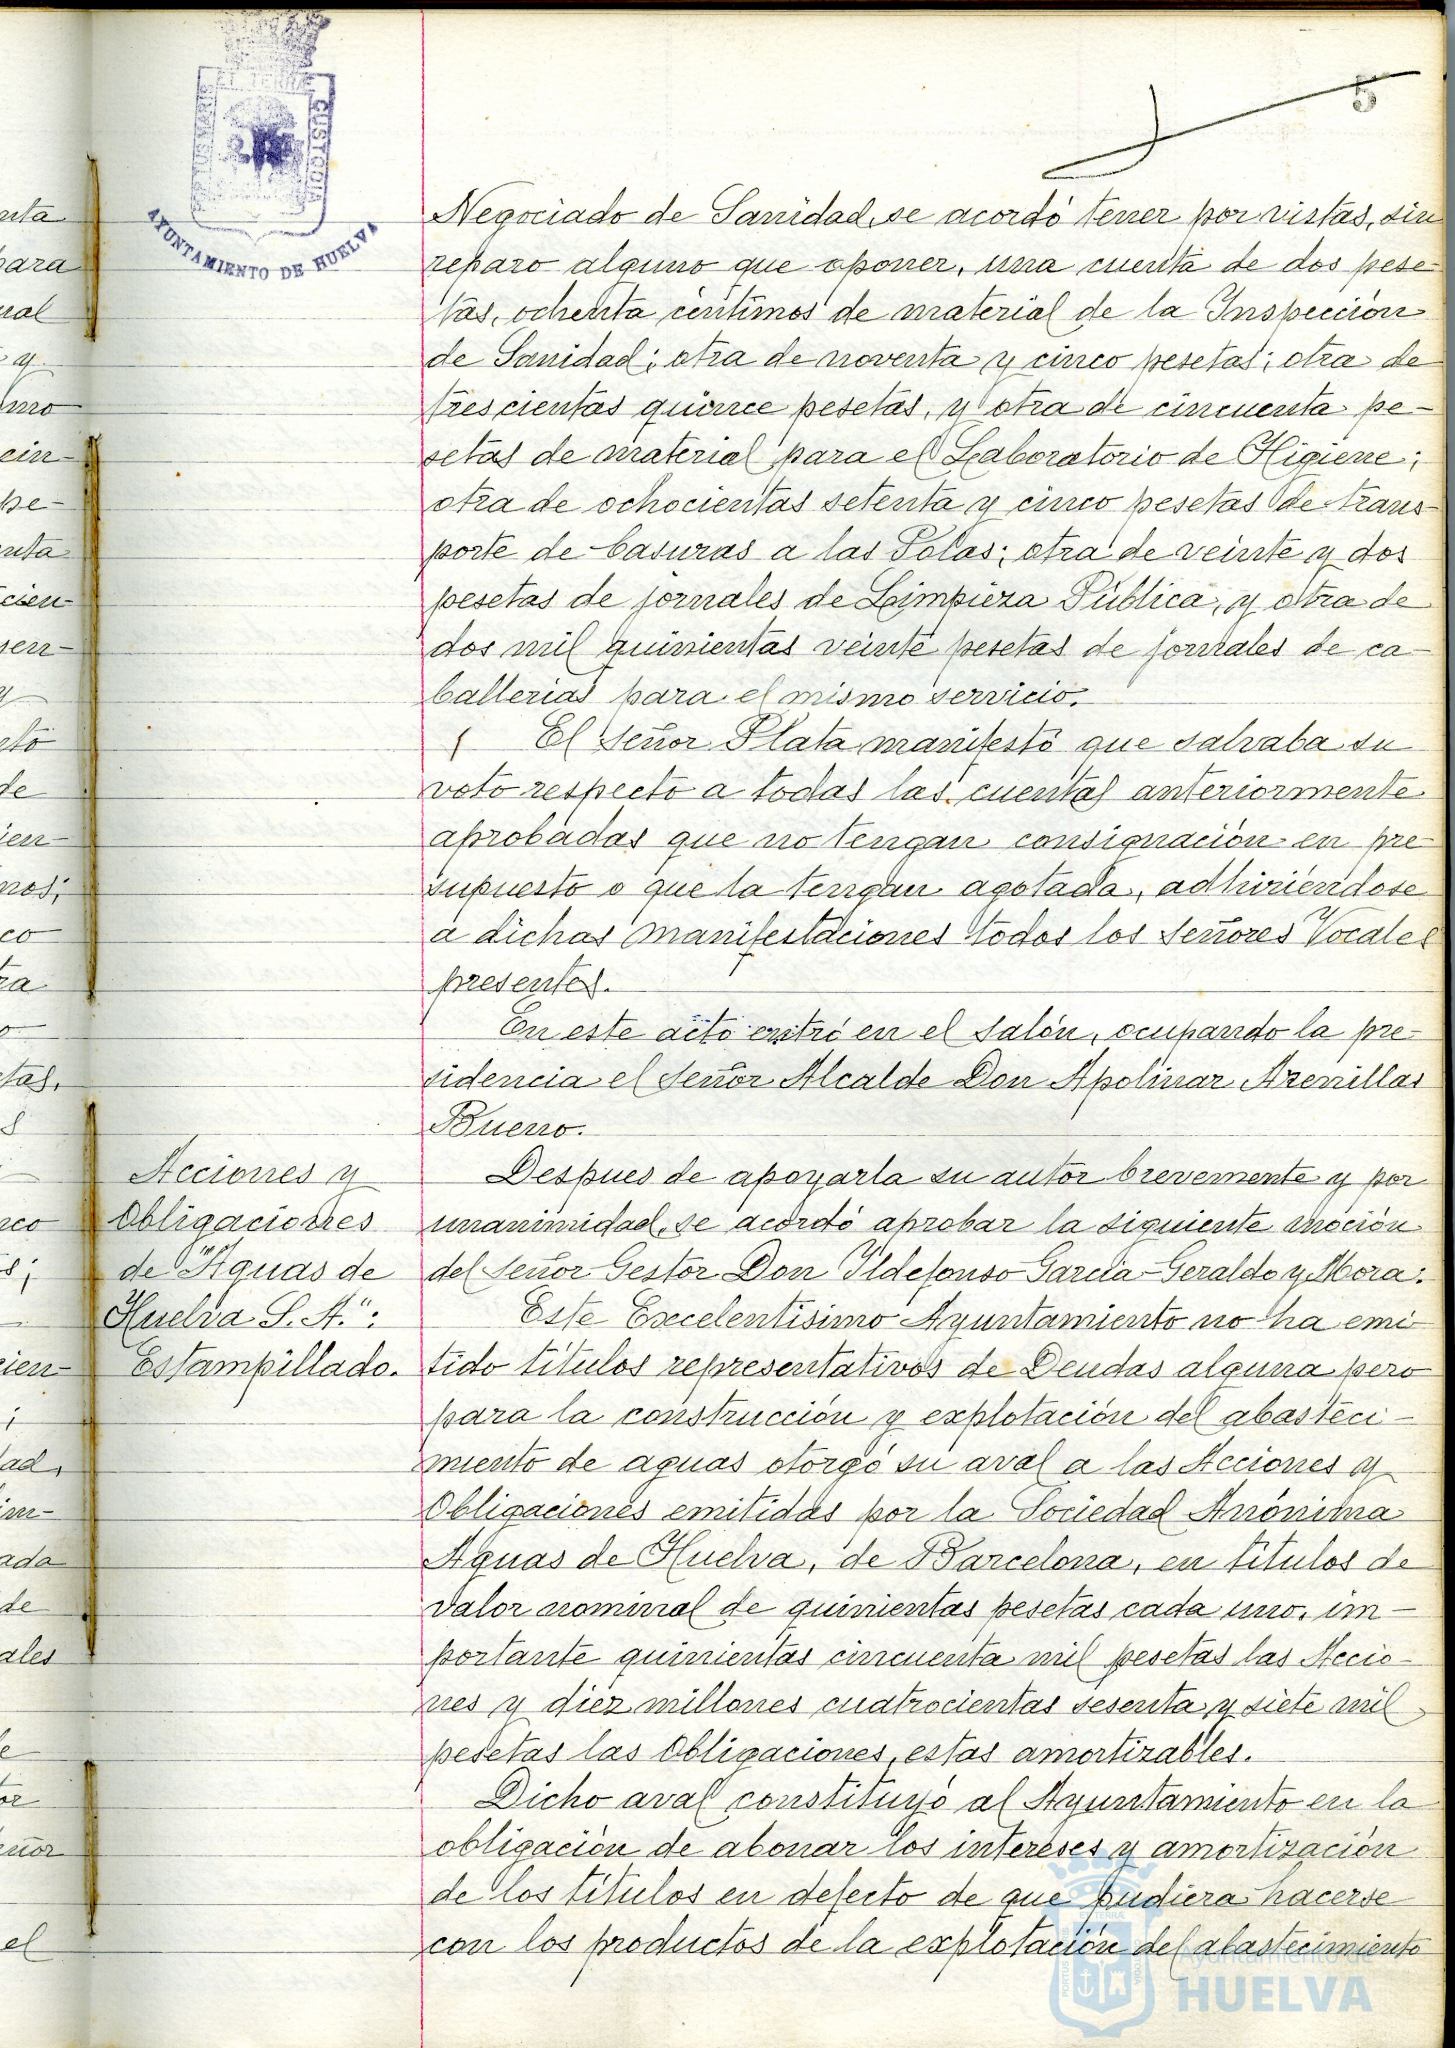 5
PORTUS MARIS
ET TERRE
CUSTODIA
AYUNTAMIENTO DE HUELVA
Negociado de Sanidad, se acordó tener por vistas, sin
reparo alguno que oponer, una cuenta de dos pese-
tas, ochenta céntimos de material de la Inspección
de Sanidad; otra de noventa y cinco pesetas; otra de
trescientas quince pesetas, y otra de cincuenta pe-
setas de material para el Laboratorio de Higiene;
otra de ochocientas setenta y cinco pesetas de trans-
porte de basuras a las Polas; otra de veinte y dos
pesetas de jornales de Limpieza Pública, y otra de
dos mil quinientas veinte pesetas de jornales de ca-
ballerias para el mismo servicio.
El Señor Plata manifestó que salvaba su
voto respecto a todas las cuentas anteriormente
aprobadas que no tengan consignación en pre-
supuesto o que la tengan agotada, adhiriéndose
a dichas manifestaciones todos los Señores Vocales
presentes.
En este acto entró en el Salón, ocupando la pre-
sidencia el Señor Alcalde Don Apolinar Arenillas
Bueno.
Acciones y
Obligaciones
de "Aguas de
Huelva S. A.":
Estampillado.
Despues de apoyarla su autor brevemente y por
unanimidad, se acordó aprobar la siguiente moción
del Señor Gestor Don Ildefonso García-Geraldo y Mora:
Este Excelentísimo Ayuntamiento no ha emi-
tido títulos representativos de Deudas alguna pero
para la construcción y explotación del abasteci-
miento de aguas otorgó su aval a las Acciones y
Obligaciones emitidas por la Sociedad Anónima
Aguas de Huelva, de Barcelona, en títulos de
valor nominal de quinientas pesetas cada uno, im-
portante quinientas cincuenta mil pesetas las Accio-
nes y diez millones cuatrocientas sesenta y siete mil
pesetas las Obligaciones, estas amortizables.
Dicho aval constituyó al Ayuntamiento en la
obligación de abonar los intereses y amortización
de los títulos en defecto de que pudiera hacerse
con los productos de la explotación del abastecimiento
Ayuntamiento de
HUELVA